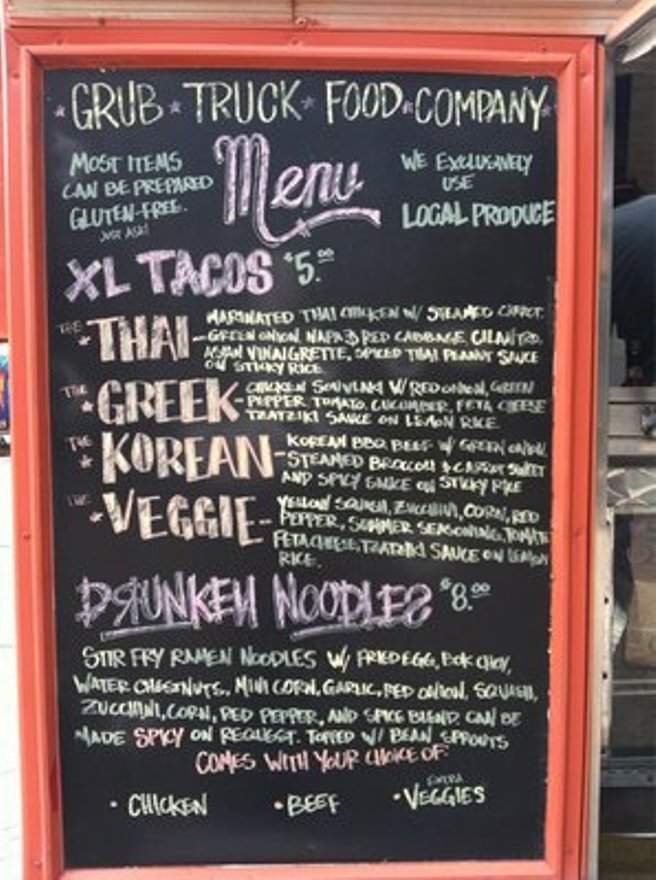 GRUB TRUCK FOOD COMPANY
MOST ITEMS
CAN BE PREPARED
GLUTEN-FREE.
JUST ASK!
Menu
WE EXCLUSIVELY
USE
LOCAL PRODUCE
XL TACOS $5.00
THE THAI - MARINATED THAI CHICKEN W/ STEAMED CARROT,
GREEN ONION, NAPA & RED CABBAGE, CILANTRO,
ASIAN VINAIGRETTE, SPICED THAI PEANUT SAUCE
ON STICKY RICE
THE GREEK - CHICKEN SOUVLAKI W/ RED ONION, GREEN
PEPPER, TOMATO, CUCUMBER, FETA CHEESE
TZATZIKI SAUCE ON LEMON RICE
THE KOREAN - KOREAN BBQ BEEF W/ GREEN ONION,
STEAMED BROCCOLI & CARROT SWEET
AND SPICY SAUCE ON STICKY RICE
THE VEGGIE - YELLOW SQUASH, ZUCCHINI, CORN, RED
PEPPER, SUMMER SEASONING, TOMATO
FETA CHEESE, TZATZIKI SAUCE ON LEMON
RICE.
DRUNKEN NOODLES $8.00
STIR FRY RAMEN NOODLES W/ FRIED EGG, BOK CHOY,
WATER CHESTNUTS, MINI CORN, GARLIC, RED ONION, SQUASH,
ZUCCHINI, CORN, RED PEPPER, AND SPICE BLEND. CAN BE
MADE SPICY ON REQUEST. TOPPED W/ BEAN SPROUTS
COMES WITH YOUR CHOICE OF:
• CHICKEN • BEEF • EXTRA VEGGIES